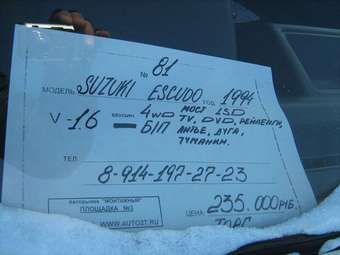 № 81
МОДЕЛЬ SUZUKI ESCUDO ГОД 1994
V - 1.6 БЕНЗИН 4WD МОСТ LSD
TV, DVD, РЕЙЛЕНГИ,
Б/П ЛИТЬЕ, ДУГА,
ТУМАНКИ.
ТЕЛ. 8-914-197-27-23
Авторынок "МОНТАЖНЫЙ"
ПЛОЩАДКА №3
WWW.AUTO27.RU
ЦЕНА: 235.000 РУБ.
ТОРГ